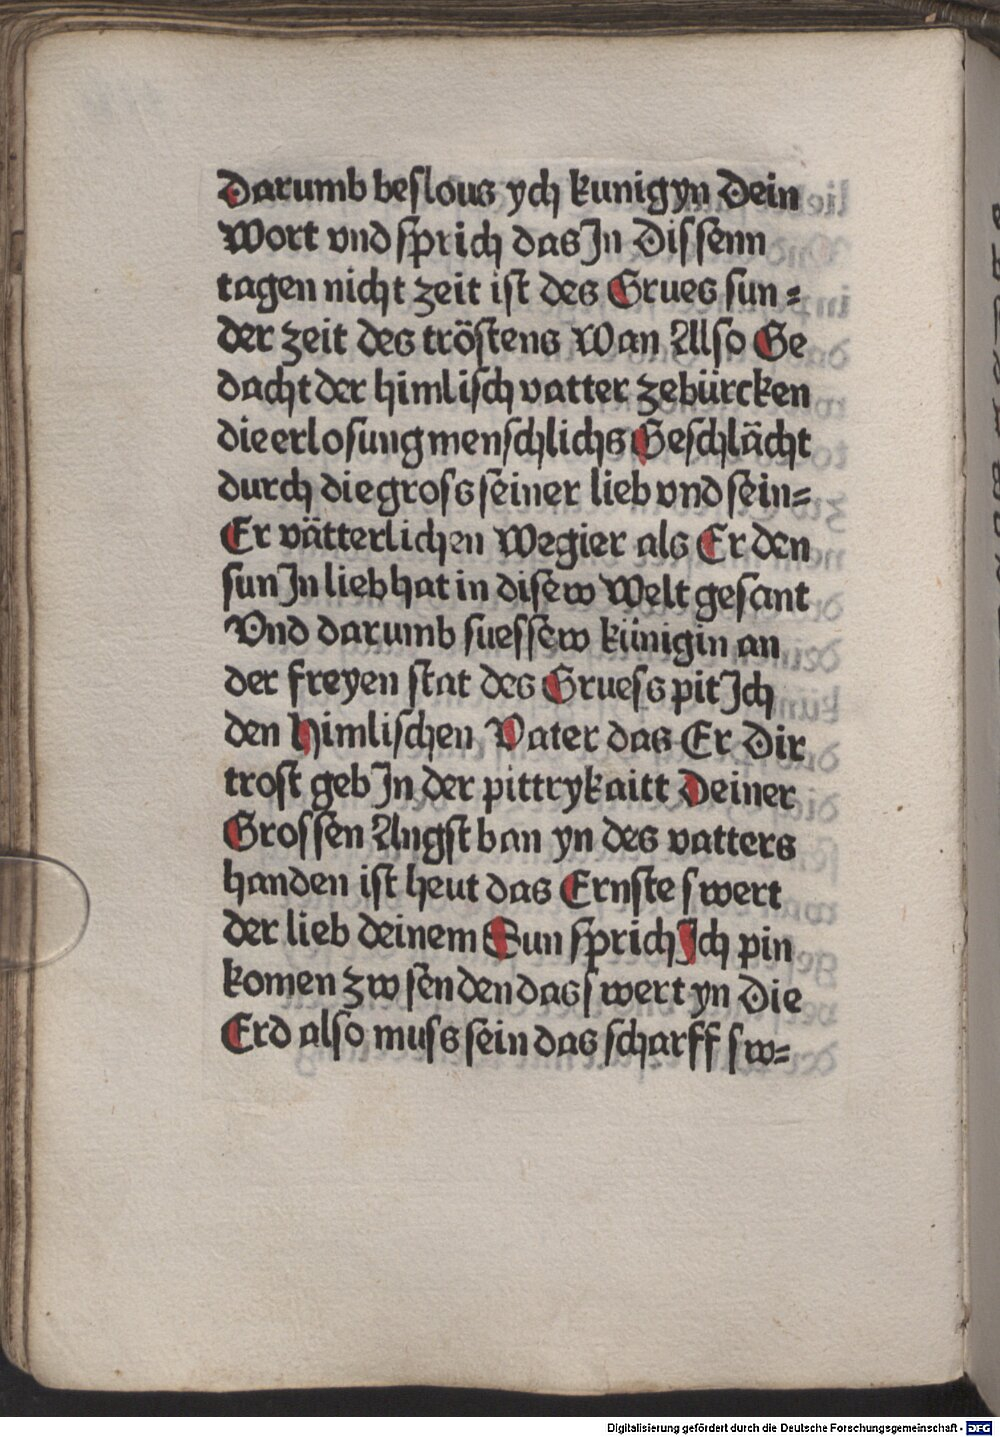 Darumb beslous ych kunigyn Dein
Wort vnd sprich das In Dissenn
tagen nicht zeit ist des Grues sun=
der zeit des tröstens Wan Also Ge
dacht der himlisch vatter zebürcken
die erlosung menschlichs Geschlächt
durch die gross seiner lieb vnd sein=
Er vätterlichen Wegier als Er den
sun In lieb hat in disew Welt gesant
Vnd darumb suessew künigin an
der freyen stat des Gruess pit Ich
den Himlischen Vater das Er Dir
trost geb In der pittrykaitt Deiner
Grossen Angst ban yn des vatters
handen ist heut das Ernste swert
der lieb deinem Sun sprich Ich pin
komen zw senden das swert yn Die
Erd also muss sein das scharff sw=
Digitalisierung gefördert durch die Deutsche Forschungsgemeinschaft - DFG